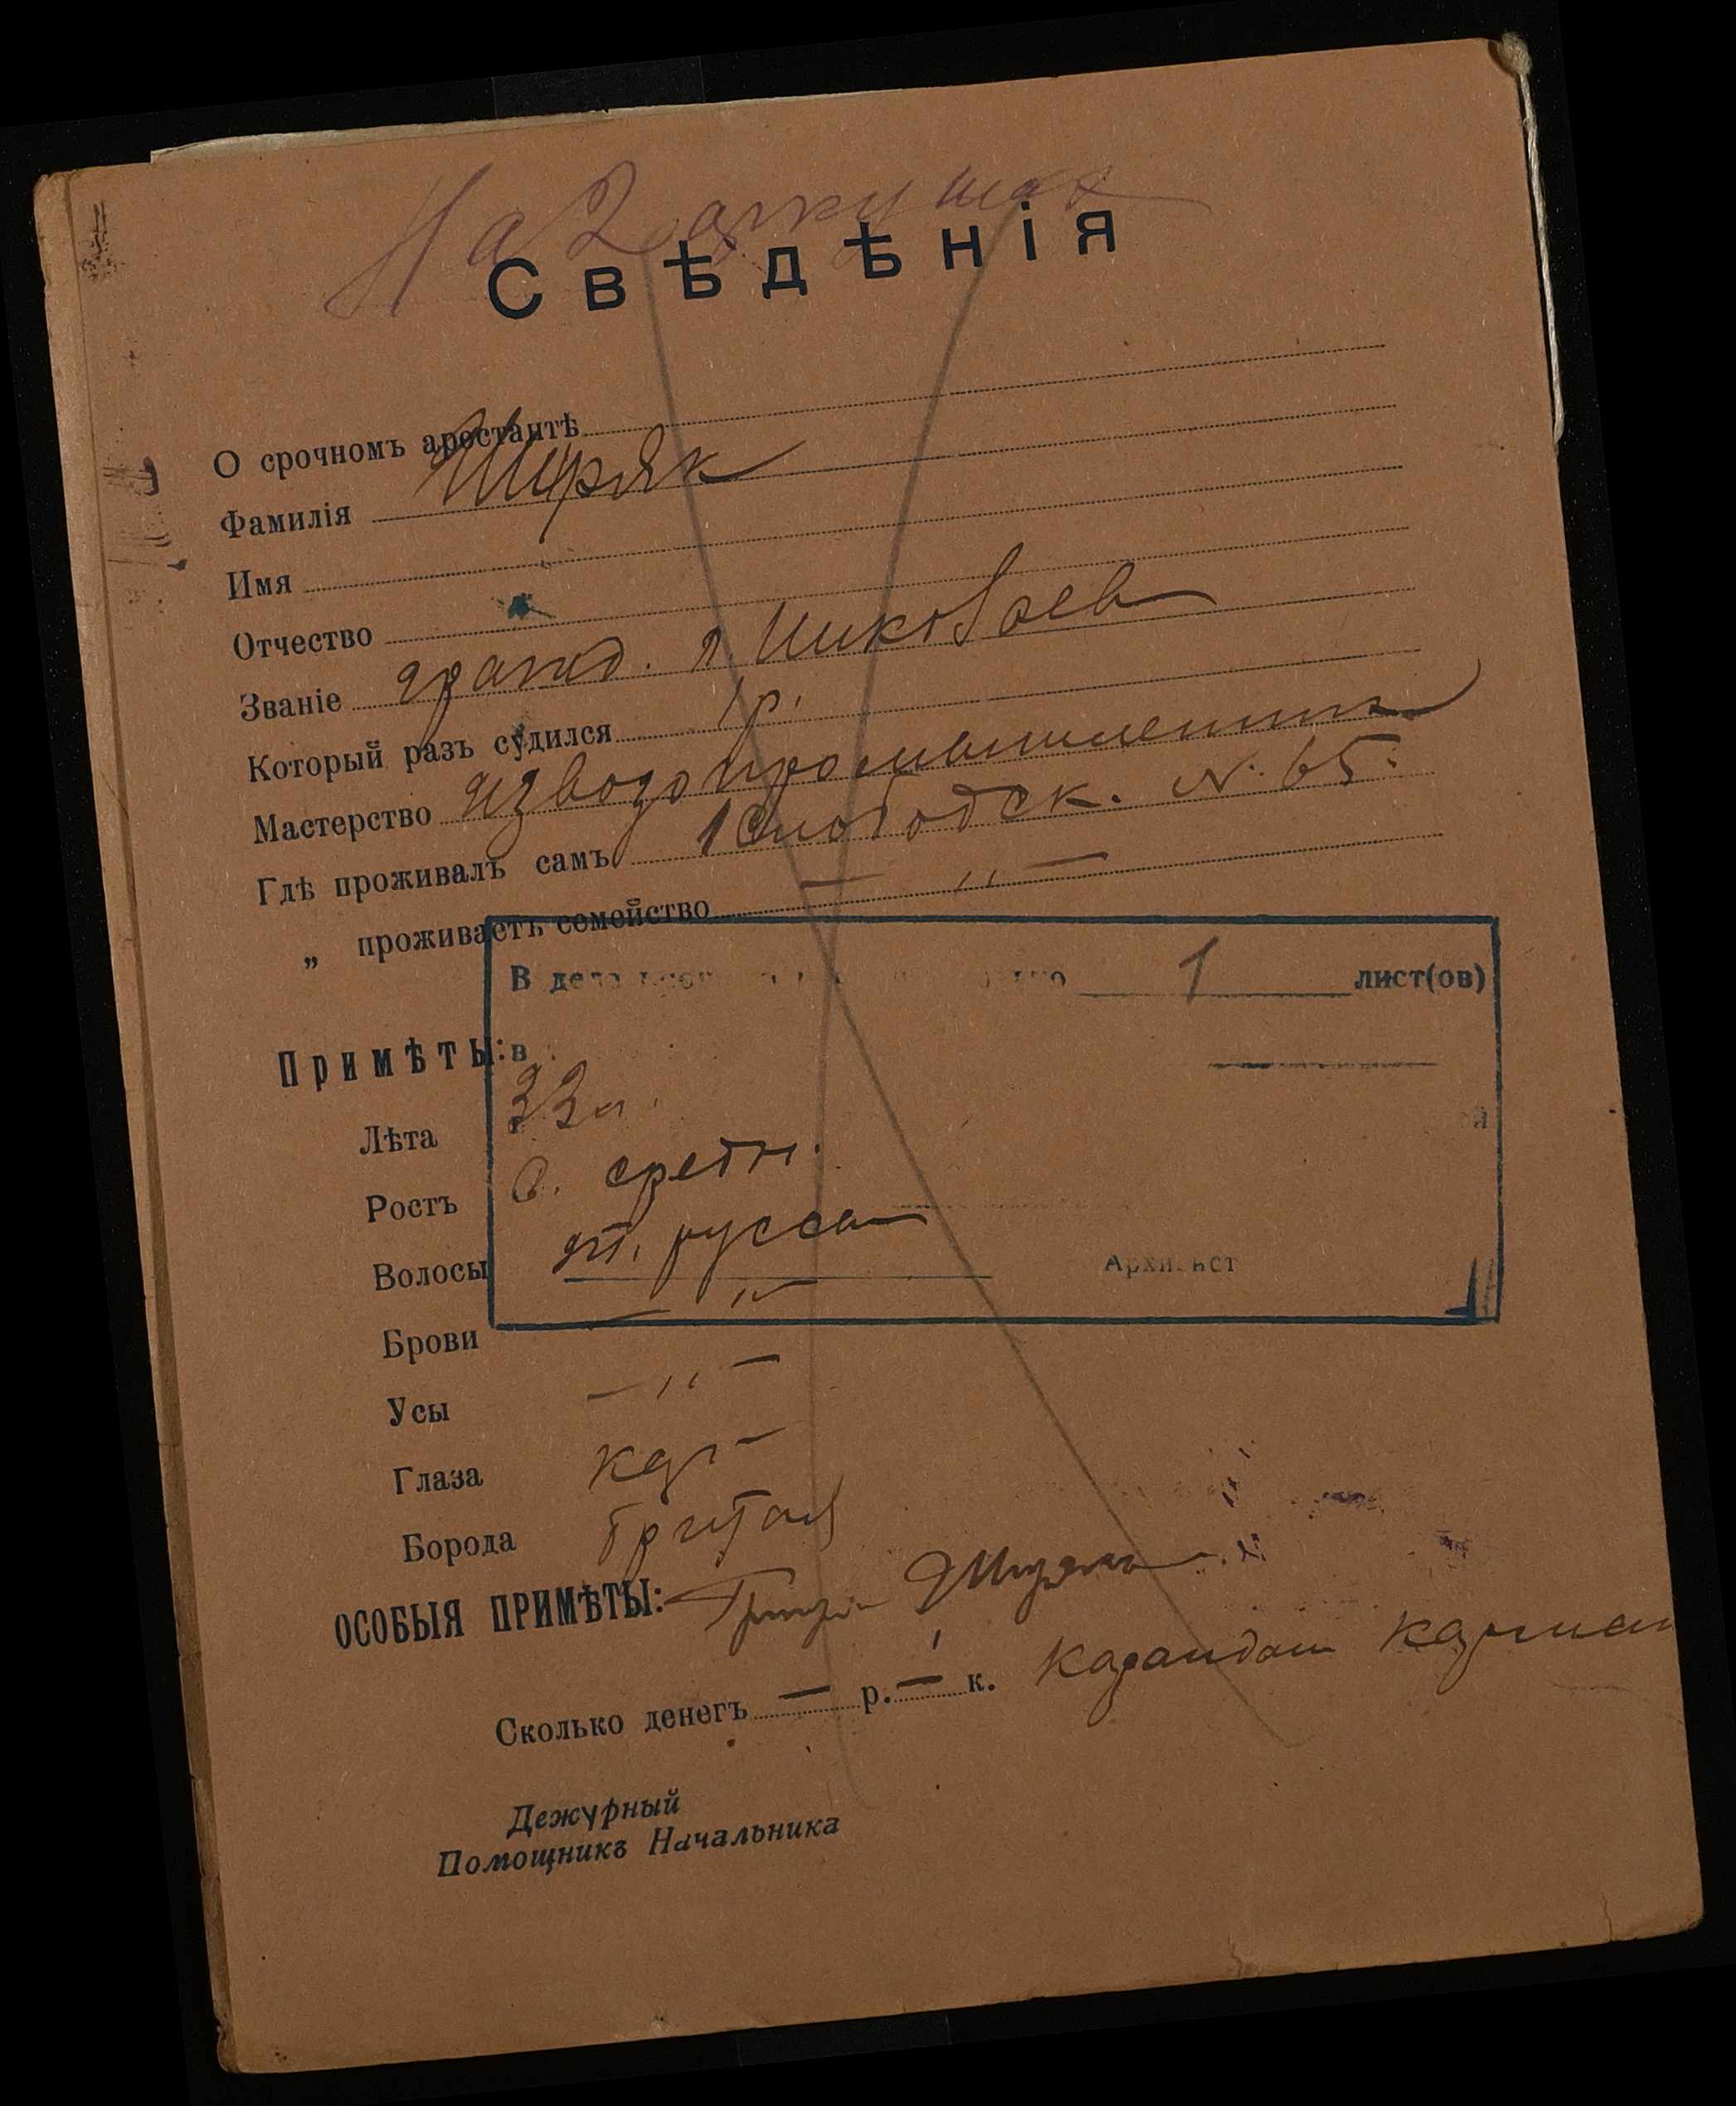 На 2 аркушах
Свѣдѣнія
О срочномъ арестантѣ
Фамилія Ширяк
Имя
Отчество
Званіе гражд. г. Николаев
Который разъ судился 1 р.
Мастерство извозопромышленник
Гдѣ проживалъ самъ 1 Слободск. N. 65.
„ проживаетъ семейство — ,, —
В деле 1 лист(ов)
Примѣты: в
Лѣта 33 л.
Ростъ с. средн.
Волосы т. русые
Брови — ,, —
Усы — ,, —
Глаза кар —
Борода бритая
ОСОБЫЯ ПРИМѢТЫ:
Сколько денегъ — р. — к. карандаш
Архивист
Дежурный
Помощникъ Начальника